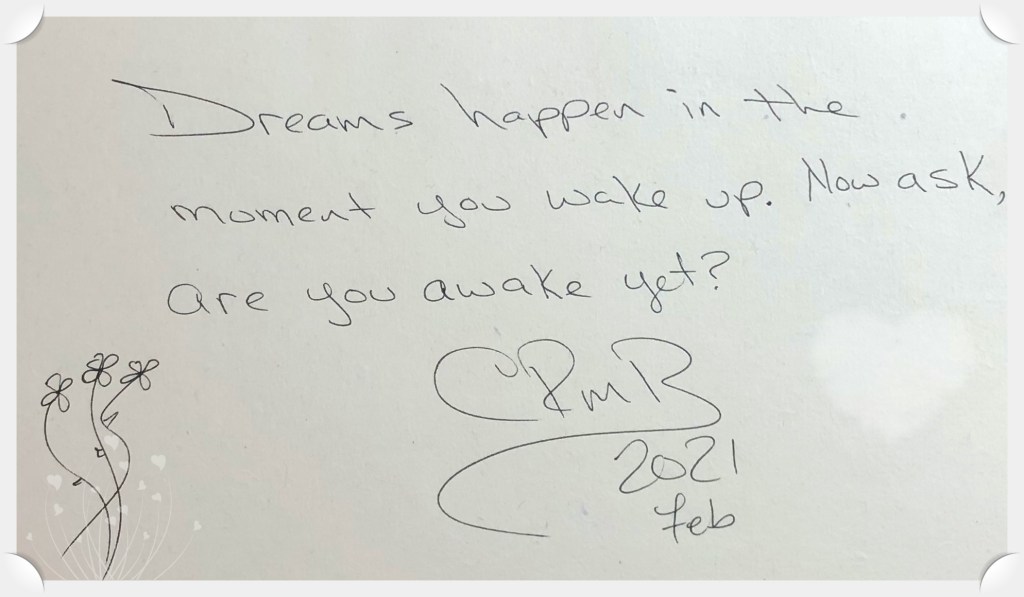 Dreams happen in the
moment you wake up. Now ask,
are you awake yet?
CRmB
2021
Feb